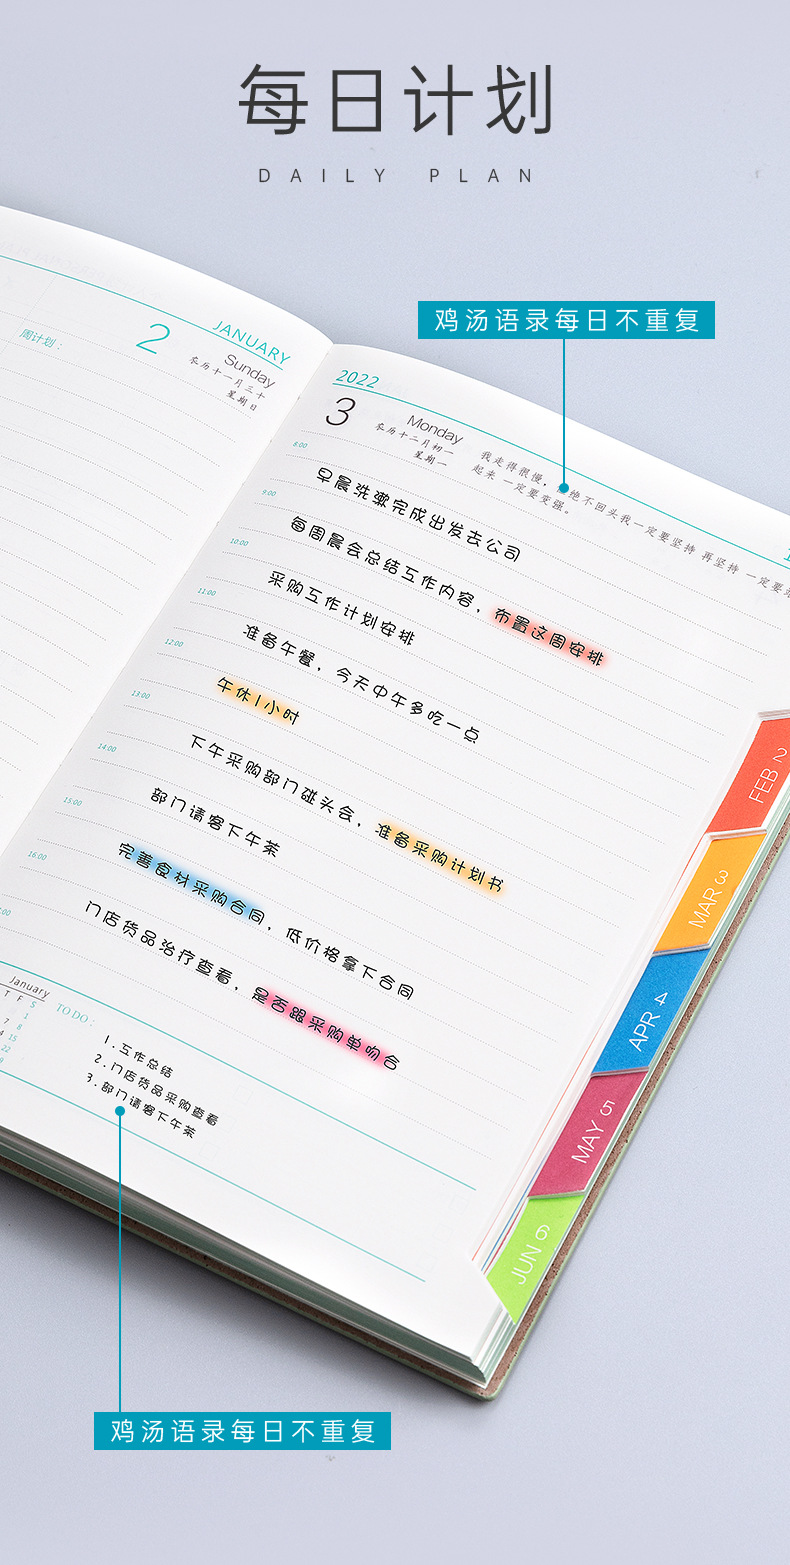 每日计划
DAILY PLAN
鸡汤语录每日不重复
2
JANUARY
Sunday
农历十一月三十
星期日
周计划：
2022
3
Monday
农历十二月初一
星期一
我走得很慢，绝不回头我一定要坚持 再坚持 一定要
起来 一定要变强。
8:00
早晨洗漱完成出发去公司
9:00
每周晨会总结工作内容，布置这周安排
10:00
采购工作计划安排
11:00
准备午餐，今天中午多吃一点
12:00
午休1小时
13:00
下午采购部门碰头会，准备采购计划书
14:00
部门请客下午茶
15:00
完善食材采购合同，低价格拿下合同
16:00
门店货品治疗查看，是否跟采购单吻合
:00
January
T F S
1
7 8
4 15
22
TO DO :
1.工作总结
2.门店货品采购查看
3.部门请客下午茶
FEB 2
MAR 3
APR 4
MAY 5
JUN 6
鸡汤语录每日不重复